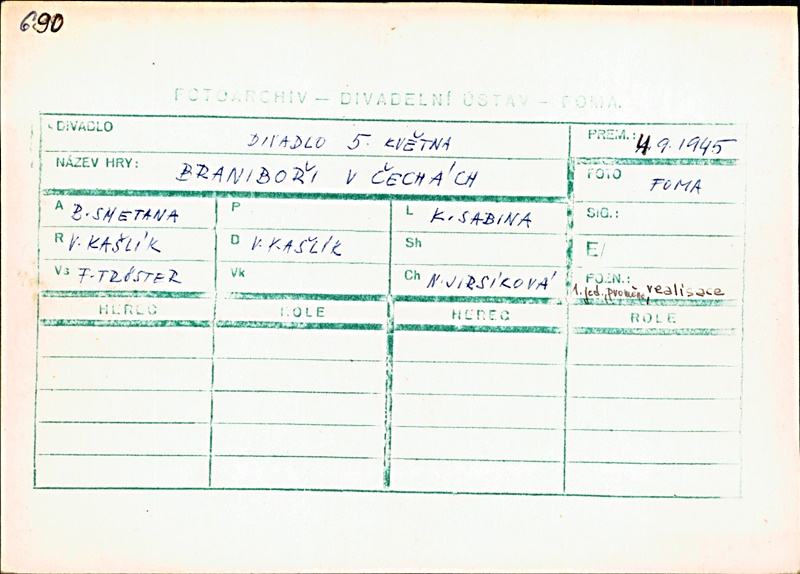 690
FOTOARCHIV – DIVADELNÍ ÚSTAV – FOMA
DIVADLO DIVADLO 5. KVĚTNA PREM.: 4.9.1945
NÁZEV HRY: BRANIBOŘI V ČECHÁCH FOTO FOMA
A B. SMETANA P L K. SABINA SIG.:
R V. KAŠLÍK D V. KAŠLÍK Sh E/
Vs F. TRÖSTER Vk Ch N. JIRSÍKOVÁ POZN.:
1. jed., proměna, realisace
HEREC ROLE HEREC ROLE